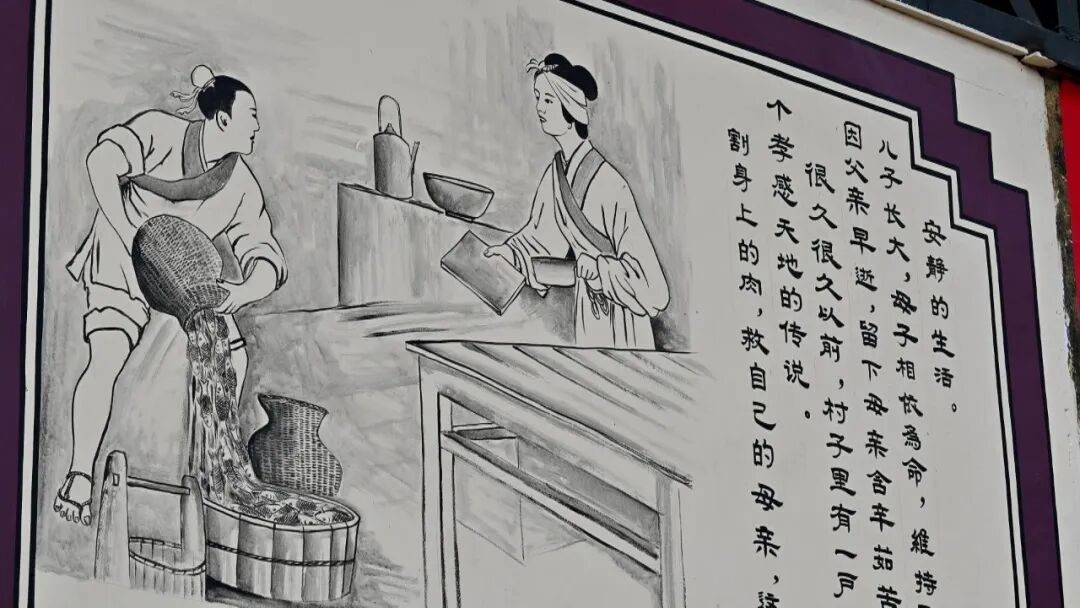 割身上的肉，救自己的母亲，这
个孝感天地的传说。
很久很久以前，村子里有一户
因父亲早逝，留下母亲含辛茹苦
儿子长大，母子相依為命，維持
安静的生活。